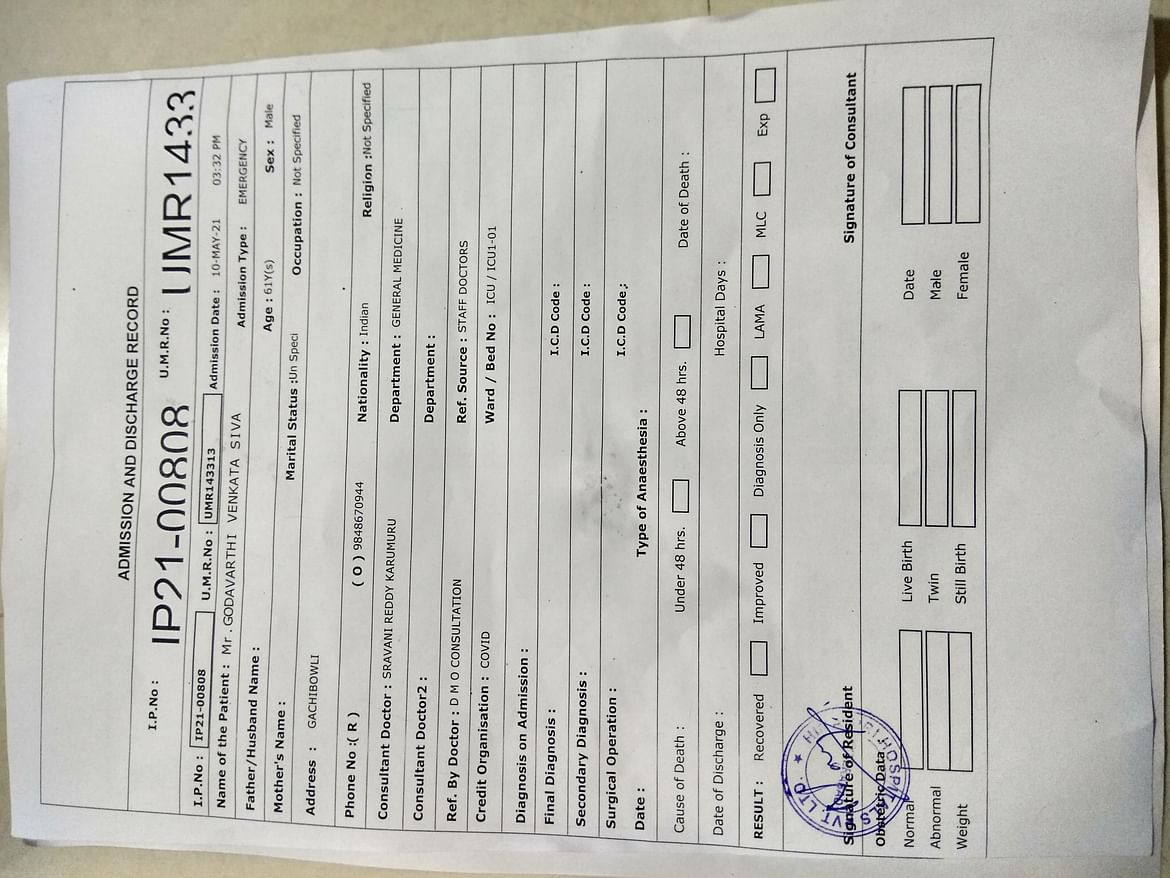 ADMISSION AND DISCHARGE RECORD
I.P.No : IP21-00808 U.M.R.No : UMR1433
I.P.No : IP21-00808 U.M.R.No : UMR143313 Admission Date : 10-MAY-21 03:32 PM
Name of the Patient : Mr . GODAVARTHI VENKATA SIVA Admission Type : EMERGENCY
Father/Husband Name : Age : 61Y(s) Sex : Male
Mother's Name : Marital Status :Un Speci Occupation : Not Specified
Address : GACHIBOWLI
Phone No :( R ) ( O ) 9848670944 Nationality : Indian Religion :Not Specified
Consultant Doctor : SRAVANI REDDY KARUMURU Department : GENERAL MEDICINE
Consultant Doctor2 : Department :
Ref. By Doctor : D M O CONSULTATION Ref. Source : STAFF DOCTORS
Credit Organisation : COVID Ward / Bed No : ICU / ICU1-01
Diagnosis on Admission :
Final Diagnosis : I.C.D Code :
Secondary Diagnosis : I.C.D Code :
Surgical Operation : I.C.D Code :
Date : Type of Anaesthesia :
Cause of Death : Under 48 hrs. Above 48 hrs. Date of Death :
Date of Discharge : Hospital Days :
RESULT : Recovered Improved Diagnosis Only LAMA MLC Exp
Signature of Resident Signature of Consultant
Obstetric Data
Normal Live Birth Date
Abnormal Twin Male
Weight Still Birth Female